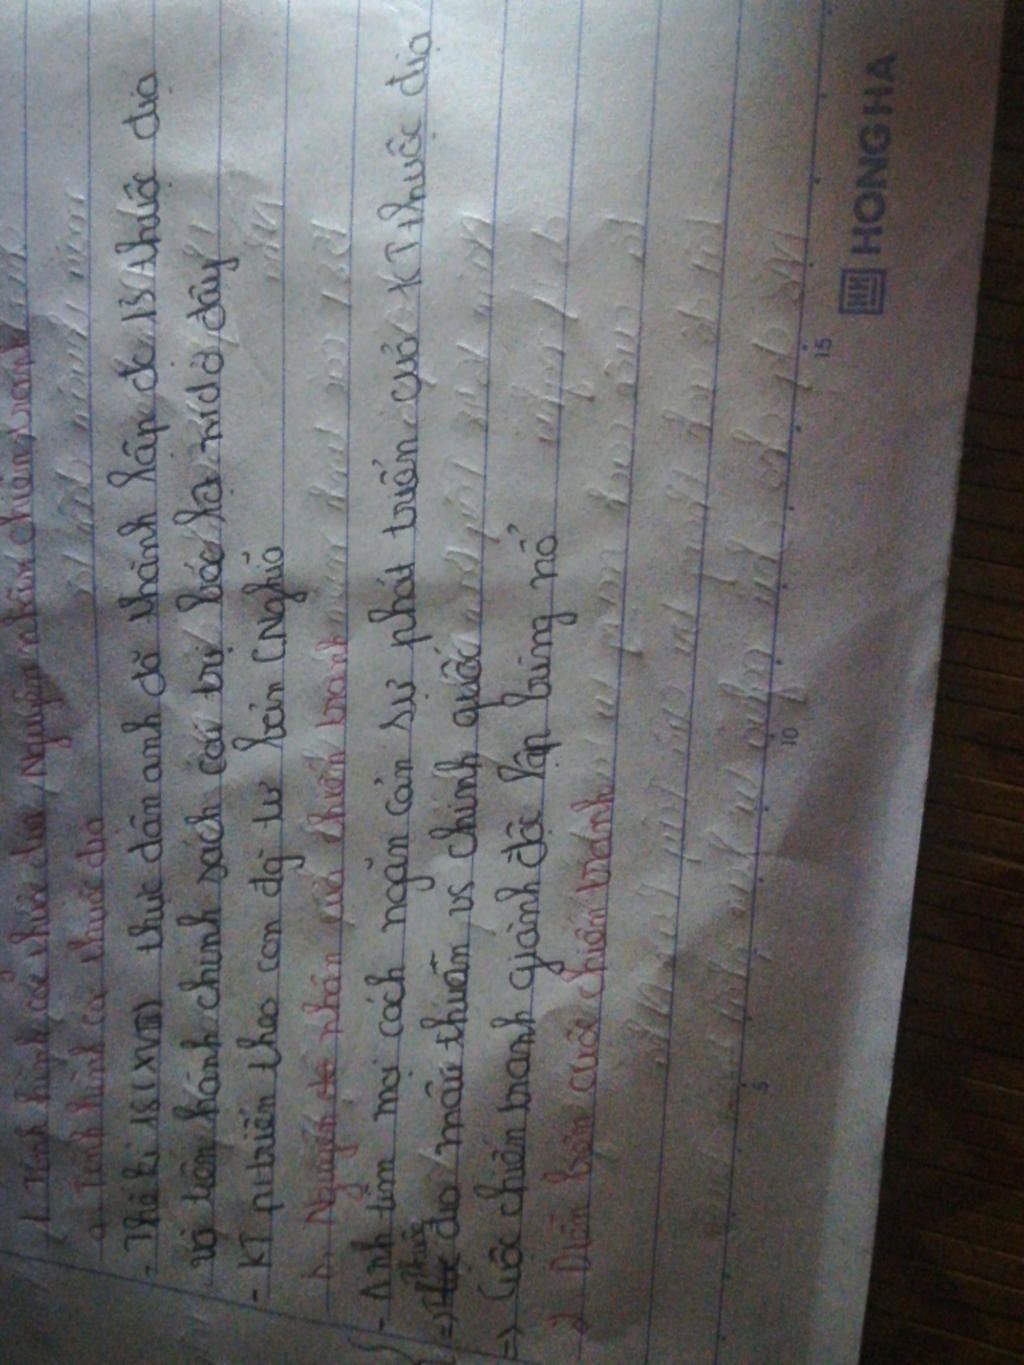 1. Tình hình các thuộc địa. Nguyên nhân chiến tranh
a. Tình hình các thuộc địa
- Thế kỉ 18 (XVIII) thực dân anh đã thành lập đc 13 thuộc địa
và tiến hành chính sách cai trị bóc lột nd ở đây
- KT ptriển theo con đg tư bản CNghĩa
b. Nguyên nhân của chiến tranh
- Anh tìm mọi cách ngăn cản sự phát triển của KT thuộc địa
=> Thuộc do mâu thuẫn vs chính quốc
=> Cuộc chiến tranh giành độc lập bùng nổ
2) Diễn biến cuộc chiến tranh
5 10 15
HONG HA